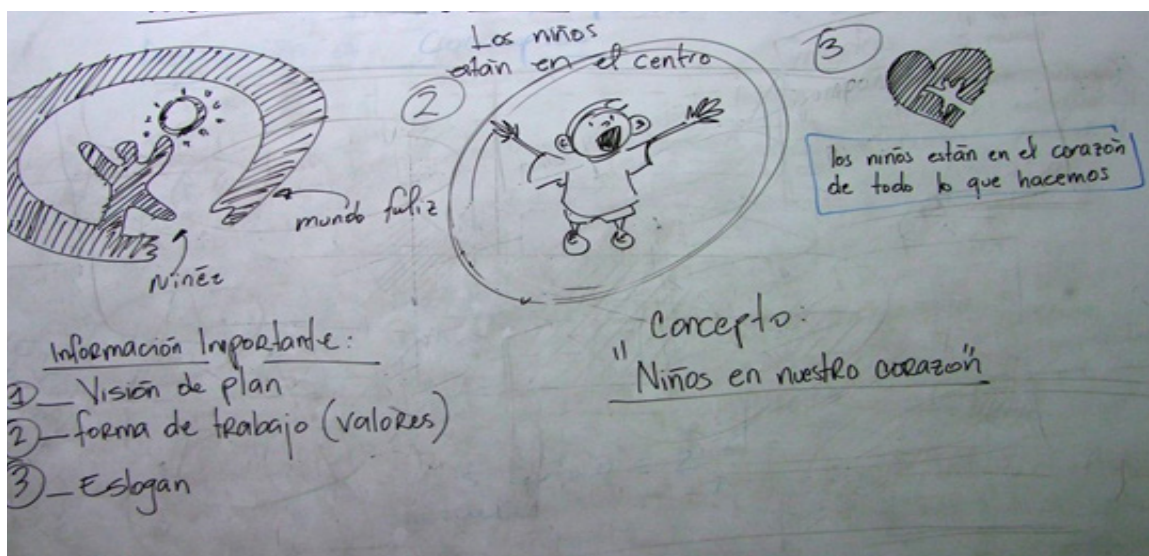 Los niños
están en el centro
2
3
los niños están en el corazón
de todo lo que hacemos
mundo feliz
Niñez
Información Importante:
1 _ Visión de plan
2 _ forma de trabajo (valores)
3 _ Eslogan
Concepto:
"Niños en nuestro corazón"